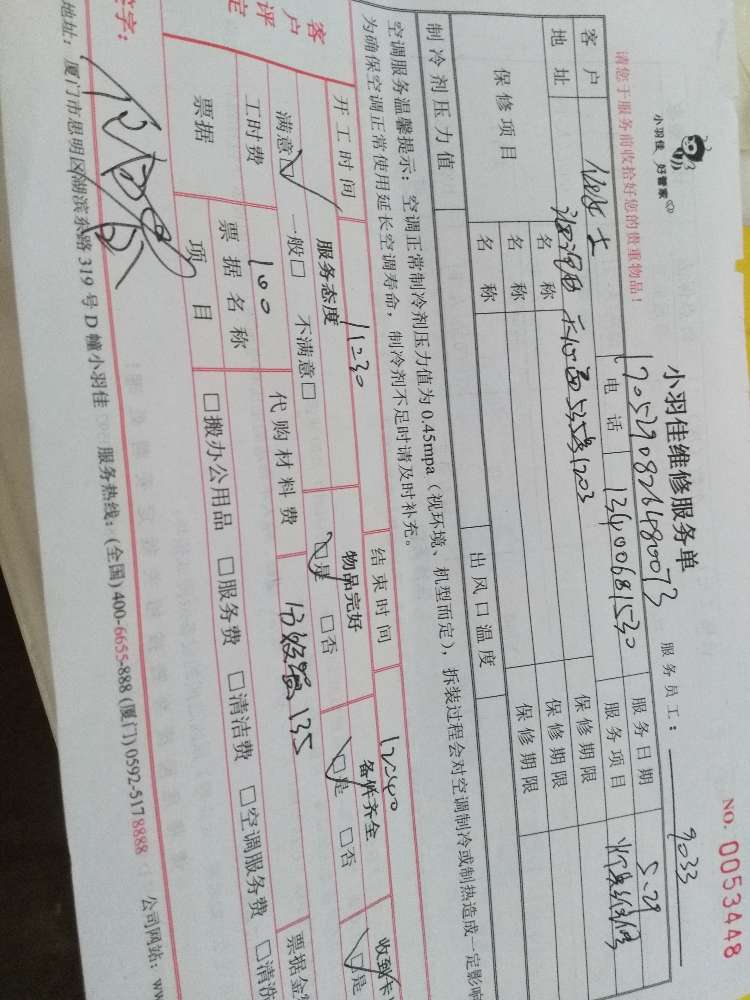 NO. 0053448
小羽佳 好管家
小羽佳维修服务单
服务员工： 9033
请您于服务前收拾好您的贵重物品！
客户
电话 13400681530
服务日期 5.29
地址
535号1203
服务项目
保修项目
名称
保修期限
名称
保修期限
名称
保修期限
制冷剂压力值
出风口温度
空调服务温馨提示：空调正常制冷剂压力值为 0.45mpa（视环境、机型而定），拆装过程会对空调制冷或制热造成一定影响
为确保空调正常使用延长空调寿命，制冷剂不足时请及时补充。
开工时间 11:30
结束时间 12:40
客户评定
服务态度
物品完好
备件齐全
收到卡
满意☑ 一般□ 不满意□
☑是 □否
☑是 □否
☑是
工时费 100
代购材料费 135
票据
票据名称
项目
□搬办公用品 □服务费 □清洁费 □空调服务费 □清洗
票据金
签字：
地址：厦门市思明区湖滨东路 319 号 D 幢小羽佳
服务热线：(全国) 400-6655-888 (厦门) 0592-5178888
公司网站：